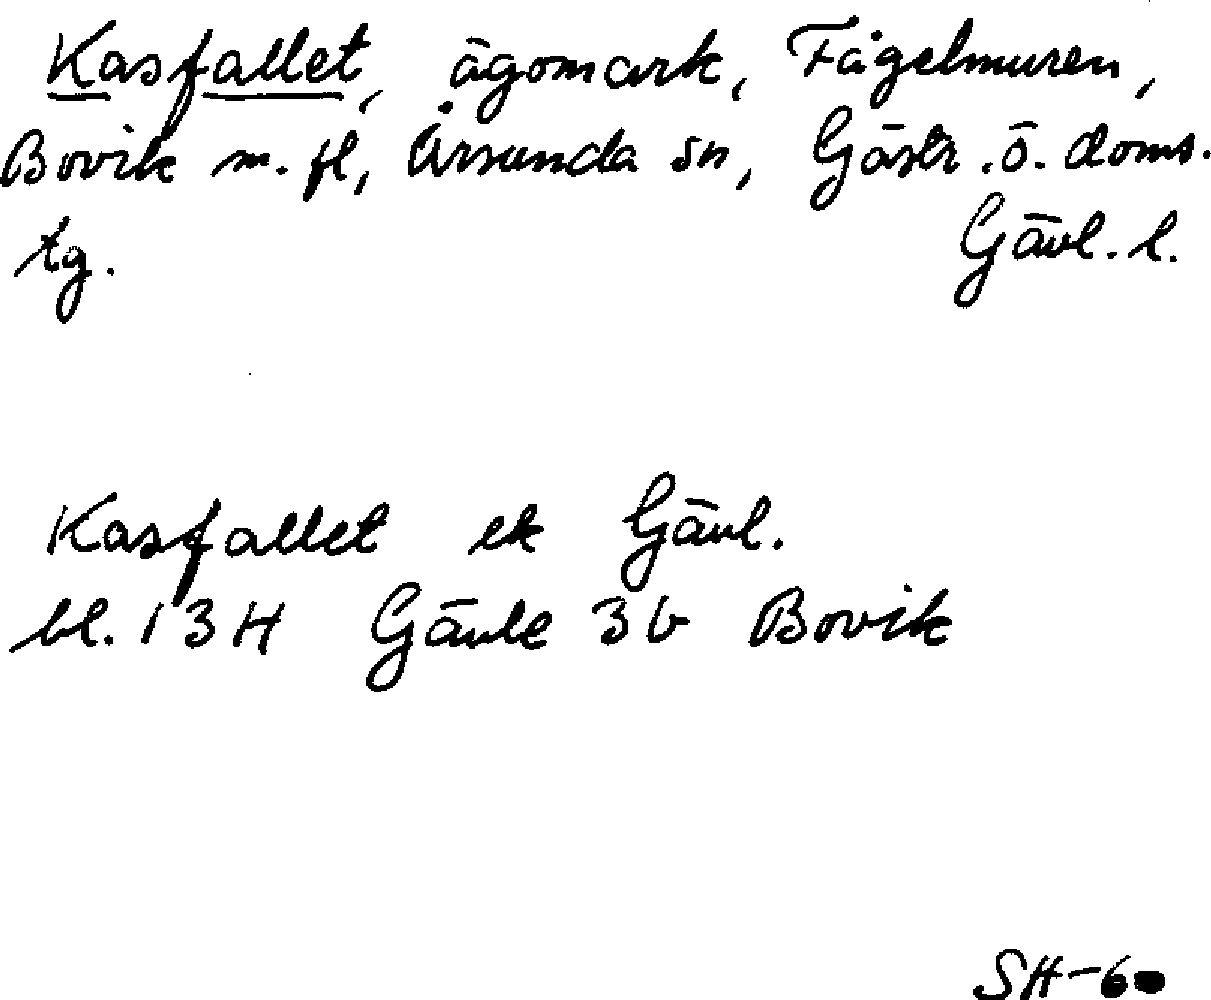 Kasfallet, ägomark, Fågelmuren,
Bovik m. fl, Årsunda sn, Gästr. ö. doms.
tg. Gävl. l.
Kasfallet ek Gävl.
bl. 13H Gävle 3b Bovik
SH-60